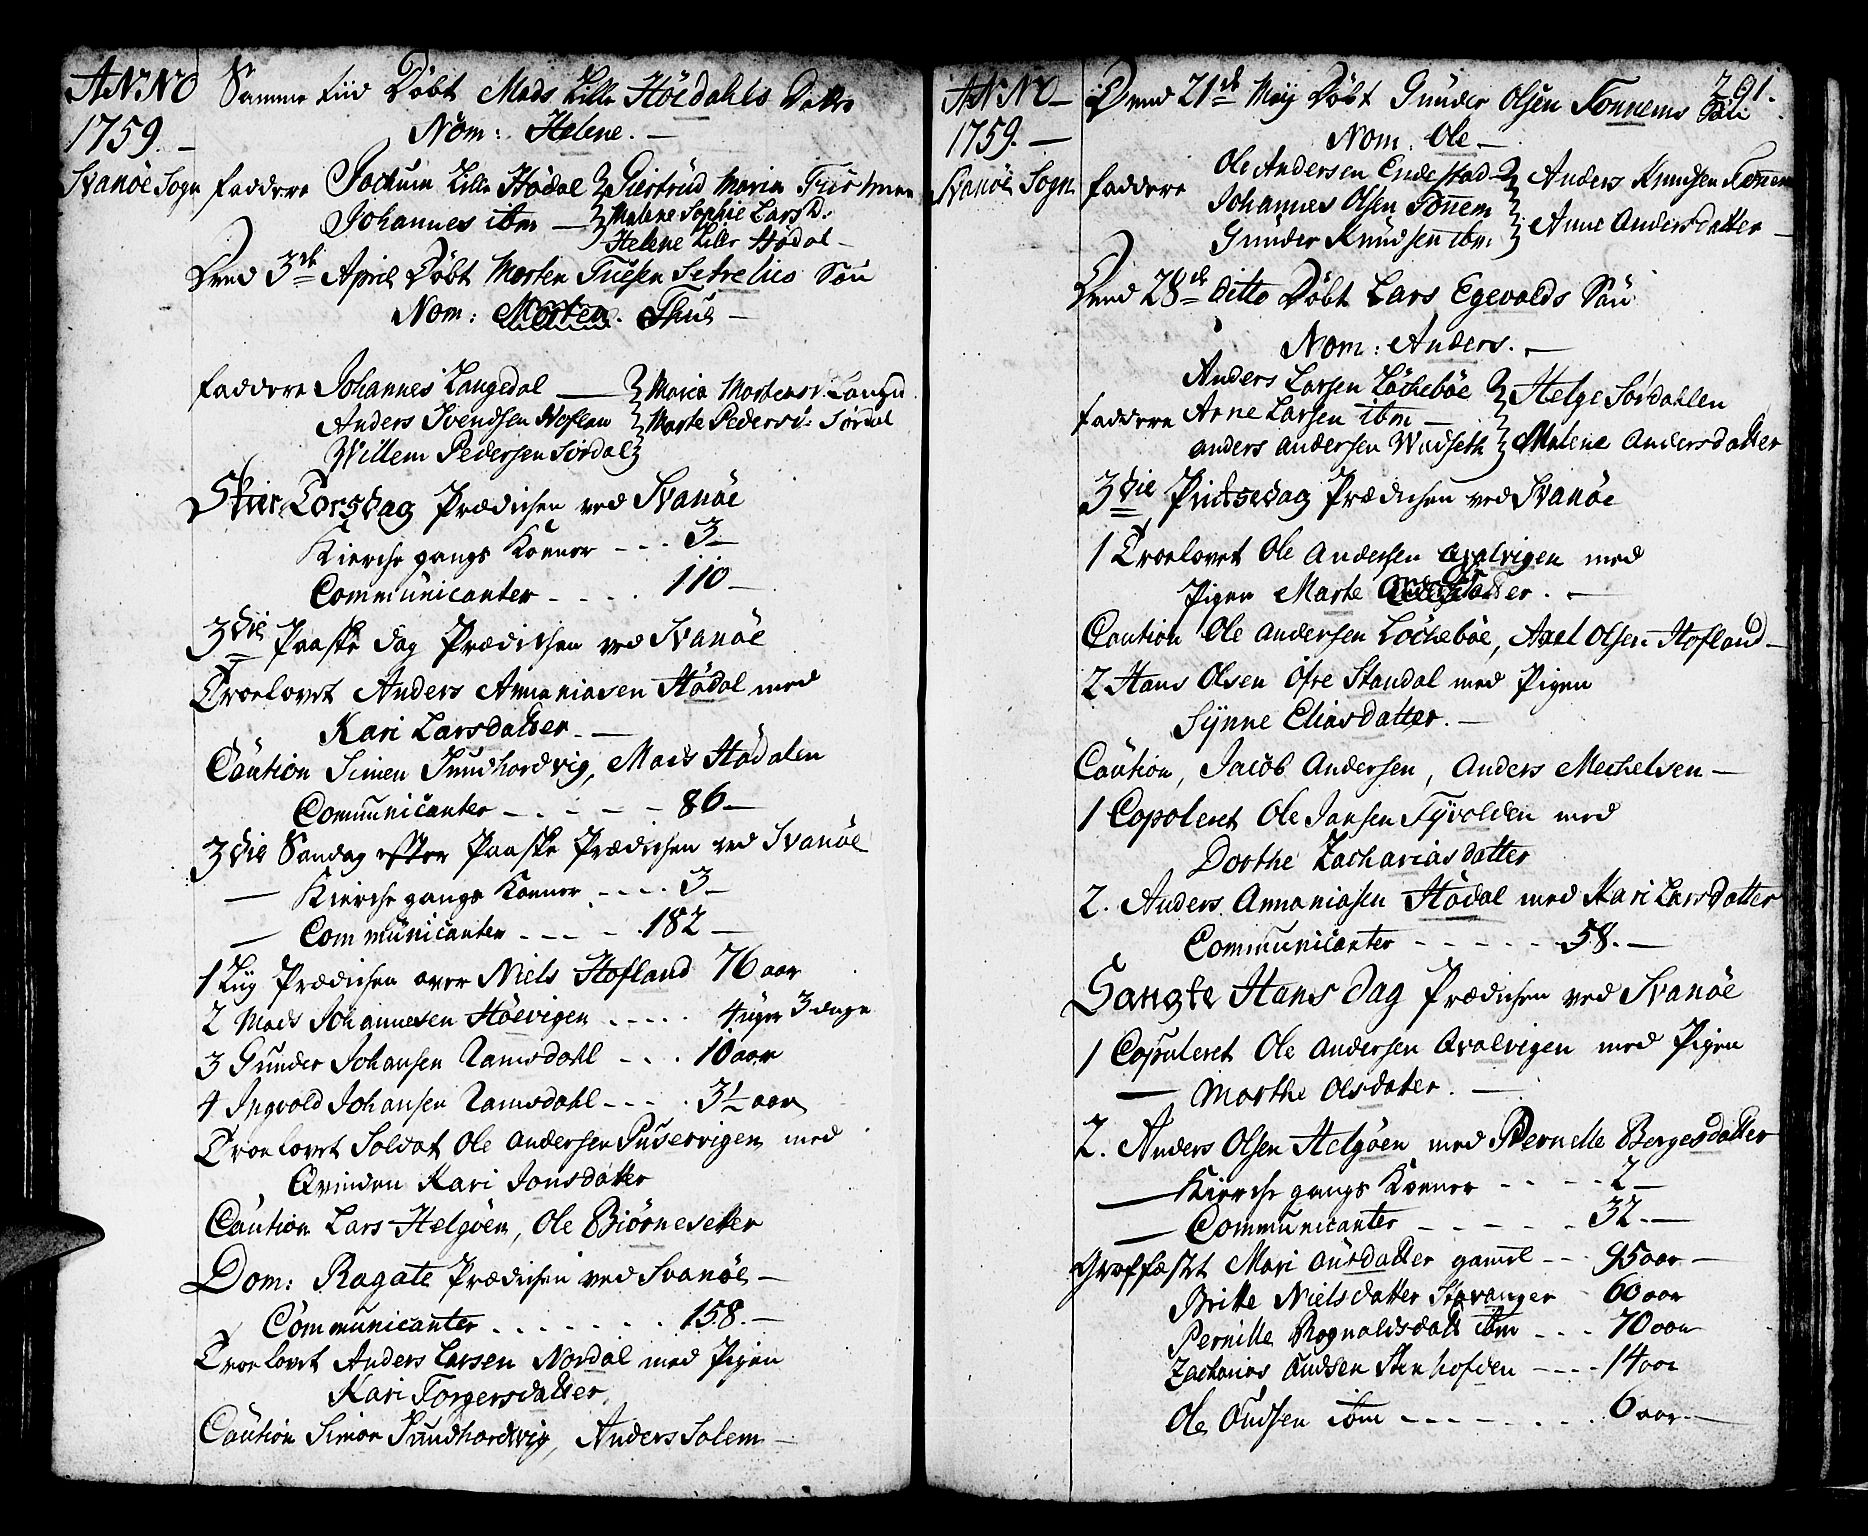 ANNO
1759. -
Svanöe Sogn
Samme tiid Döbt Mads Lille Höedahls Datter
Nom: Helene. -
faddere Jochum Lille Hödal Giertrud Maria
Johannes ibm - Malene Sophie LarsD:
Helene Lille Hödal -
Dend 3de April Döbt Morten Tuesen Setrelies Sön
Nom: Morten. Thue -
faddere Johannes Langedal - Maria Mortensd:
Anders Svendsen Hofland Marte Pedersd: Sördal
Willem Pedersen Sördal
Skier Torsdag Prædichen ved Svanöe
Kierche gangs Koner - - - 3 -
Communicanter - - - - 110 -
3die Paaske dag Prædichen ved Svanöe
Troelovet Anders Annaniasen Hödal med
Kari Larsdatter. -
Caution Simen Sundhordvig, Mads Hödalen
Communicanter - - - - - 86 -
3die Sondag efter Paaske Prædichen ved Svanöe
- Kierche gangs Koner - - - - 3 -
- Communicanter - - - - 182 -
1 Liig Prædichen over Niels Hofland 76 aar
2 Mads Johannesen Höevigen - - - - 4 uger 3 dage
3 Gunder Johansen Ramsdahl - - - 10 aar
4 Ingvold Johansen Ramsdahl - - - - 3½ aar
Troelovet Soldat Ole Andersen med
Qvinden Kari Jonsdatter
Caution Lars Helgöen, Ole Biörnesetter
Dom: Rogate Prædichen ved Svanöe -
Communicanter - - - - - - - 158. -
Troelovet Anders Larsen Nordal med Pigen
Kari Torgersdatter
Caution Simon Sundhordvig, Anders Solem -
ANNO -
1759. -
Svanöe Sogn
291.
Dend 21de Maij Döbt Gunder Olsen Tonnems Sön
Nom. Ole -
faddere Ole Andersen Endestad Anders Knudsen Tonnem
Johannes Olsen Tonem
Gunder Knudsen ibm. Anne Andersdatter -
Dend 28de ditto Döbt Lars Egevolds Sön
Nom: Anders. -
Anders Larsen Löcheböe Helge Sördahlen
faddere Arne Larsen ibm -
anders andersen Wudseth Malene Andersdatter
3die Pintsedag Prædichen ved Svanöe
1 Troelovet Ole Andersen Qvalvigen med
Pigen Marte Olsdatter. -
Caution Ole Andersen Löcheböe, Axel Olsen Hofland -
2 Hans Olsen Öfre Standal med Pigen
Synne Eliasdatter. -
Caution, Jacob Andersen, Anders Mechelsen -
1 Copoleret Ole Jansen Tyvolden med
Dorthe Zachariasdatter
2. Anders Annaniasen Hödal med Kari Larsdatter
Communicanter - - - - - 58. -
Sangte Hans dag Prædichen ved Svanöe
1 Copuleret Ole Andersen Qvalvigen med Pigen
- Marthe Olsdatter. -
2. Anders Olsen Helgöen med Pernelle Bergesdatter
- Kierche gangs Koner - - - - 2 -
- Communicanter - - - - - 32. -
Græffæstet Mari datter gamel - - 95 aar -
Britte Nielsdatter Stavanger - 60 aar
Pernille Rognaldsdatt ibm - - - 70 aar
Zacharias Knudsen Stenhofden - - - - 14 aar
Ole Knudsen ibm - - - - - - - 6 aar -